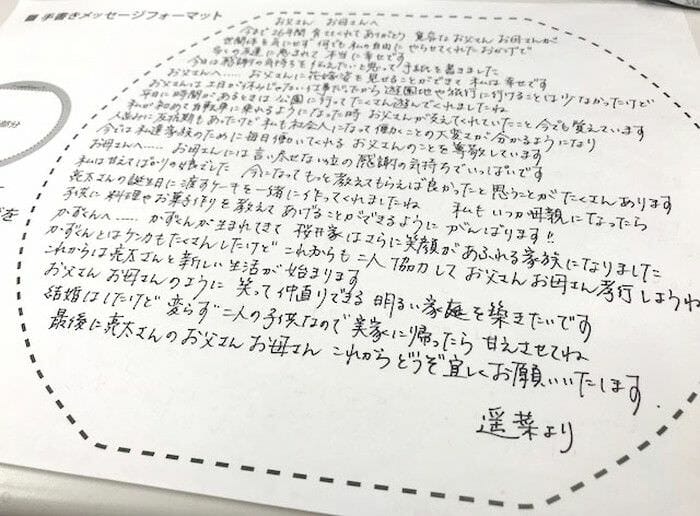 ■ 手書きメッセージフォーマット
お父さん お母さんへ
今まで26年間 育ててくれてありがとう 寛容なお父さん お母さんが
世間体を気にせず 何でも私の自由に やらせてくれたおかげで
多くの友達に恵まれて 本当に幸せです
今日は感謝の気持ちを伝えたいと思って手紙を書きました
お父さんへ…… お父さんに花嫁姿を見せることができて 私は幸せです
お父さんは土日が休みじゃない仕事だったから遊園地や旅行に行けることは少なかったけど
平日に時間があるときは 公園に行ってたくさん遊んでくれましたね
私が初めて自転車に乗れるようになった時 お父さんが支えてくれていたこと今でも覚えています
人並みに反抗期もあったけど 私も社会人になって働くことの大変さが分かるようになり
今では私達家族のために毎日働いてくれる お父さんのことを尊敬しています
お母さんへ…… お母さんには言い尽せない位の感謝の気持ちでいっぱいです
私は甘えてばかりの娘でした 今になってもっと教えてもらえば良かったと思うことがたくさんあります
亮太さんの誕生日に渡すケーキを一緒に作ってくれましたね 私もいつか母親になったら
子供に料理やお菓子作りを教えてあげることができるように がんばります!!
かずくんへ…… かずくんが生まれてきて 桜井家はさらに笑顔があふれる家族になりました
かずくんとはケンカもたくさんしたけど これからも二人協力してお父さんお母さん孝行しようね
これからは亮太さんと新しい生活が始まります
お父さん お母さんのように 笑って仲直りできる 明るい家庭を築きたいです
結婚はしたけど 変らず二人の子供なので 実家に帰ったら 甘えさせてね
最後に亮太さんのお父さん お母さん これからどうぞ宜しくお願いいたします.
遥菜より
部分
を